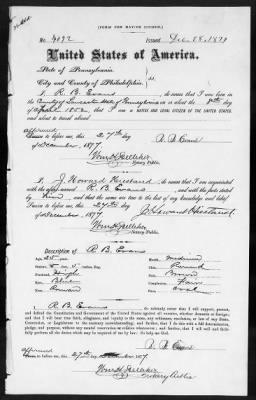 [FORM FOR NATIVE CITIZEN.]
No. 4092 Issued Dec 28, 1877
United States of America.
State of Pennsylvania
City and County of Philadelphia } ss.
I, R B Evans do swear that I was born in
the County of Lancaster State of Pennsylvania on or about the day of
1852 that I am a NATIVE AND LOYAL CITIZEN OF THE UNITED STATES,
and about to travel abroad.
affirmed
to before me, this 27th
of December, 1877.
R B Evans
Notary Public.
I, J. Howard do swear that I am acquainted
with the above-named R B Evans and with the facts stated
by him and that the same are true to the best of my knowledge and belief
to before me, this 27th
of December, 1877
Notary Public.
Description of R B Evans
Age, 25
Stature, 5
Blue
Brown
medium
Round
Brown
Fair
I, R B Evans do solemnly that I will support, protect,
and defend the Constitution and Government of the United States against all enemies, whether domestic or foreign;
and that I will bear true faith, allegiance, and loyalty to the same, any ordinance, resolution, or law of any State,
Convention, or Legislature to the contrary notwithstanding; and further, that I do this with a full determination,
pledge, and purpose, without any mental reservation or evasion whatsoever; and further, that I will well and faithfully
perform all the duties which may be required of me by law: So help me God.
R B Evans
to before me, this 27th 1877
Notary Public